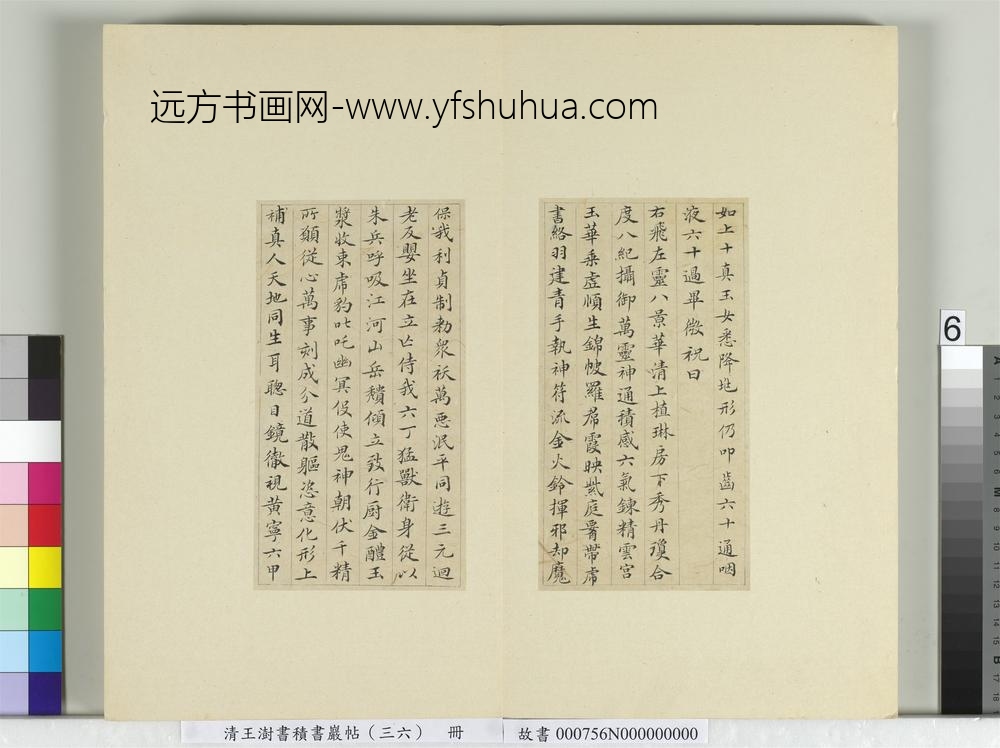 远方书画网-www.yfshuhua.com
如上十真玉女悉降地形仍叩齒六十通咽
液六十過畢微祝曰
右飛左靈八景華清上植琳房下秀丹瓊合
度八紀攝御萬靈神通積感六氣鍊精雲宮
玉華乘虛順生錦帔羅帬霞映紫庭腎帶虎
書絡羽建青手執神符流金火鈴揮邪却魔
保我利貞制勑衆祅萬惡泯平同遊三元迴
老反嬰坐在立亡侍我六丁猛獸衛身從以
朱兵呼吸江河山岳穨傾立致行厨金醴玉
漿收束虎豹叱吒幽冥役使鬼神朝伏千精
所願從心萬事剋成分道散軀恣意化形上
補真人天地同生耳聰目鏡徹視黃寧六甲
清王澍書積書巖帖（三六） 冊
故書 000756N000000000
6